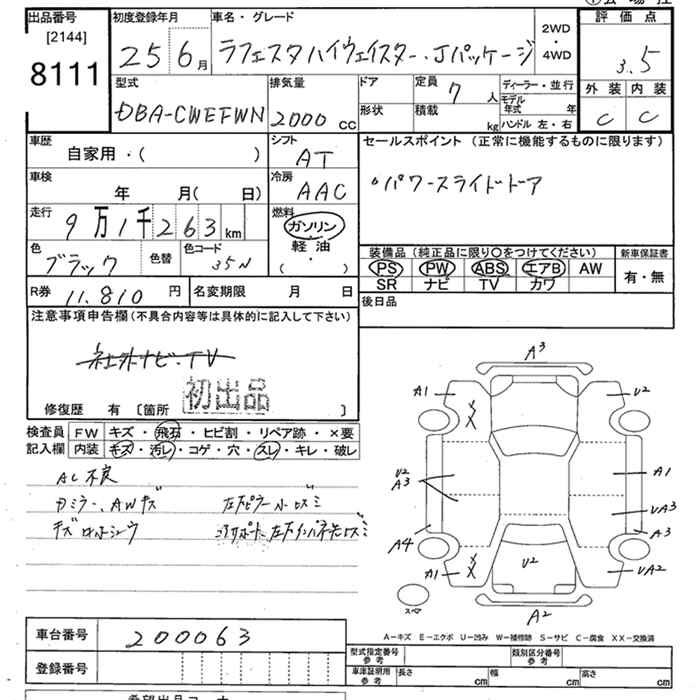 出品番号
[2144]
8111
初度登録年月
25 6月
車名・グレード
ラフェスタハイウェイスター.Jパッケージ
2WD
・
4WD
評価点
3.5
外装 内装
C C
型式
DBA-CWEFWN
排気量
2000 cc
ドア
形状
定員 7 人
積載 kg
ディーラー・並行
モデル
年式 年
ハンドル 左・右
車歴
自家用・( )
シフト
AT
セールスポイント (正常に機能するものに限ります)
◦パワースライドドア
車検
年 月( 日)
冷房
AAC
走行
9万1千263km
燃料
ガソリン
軽油
( ・ )
色
ブラック
色替
色コード
35N
装備品 (純正品に限り○をつけてください)
PS PW ABS エアB AW
SR ナビ TV カワ
新車保証書
有・無
R券 11.810 円
名変期限 月 日
後日品
注意事項申告欄(不具合内容等は具体的に記入して下さい)
社外ナビ・TV
初出品
修復歴 有 [箇所 ]
検査員
記入欄
FW キズ・飛石・ヒビ割・リペア跡・×要
内装 キズ・汚レ・コゲ・穴・スレ・キレ・破レ
AC不良
カミラー、AWキズ
A3
A1
U2
U2
A3
A1
UA3
A3
A4
A1
U2
UA2
A2
スペア
A-キズ E-エクボ U-凹み W-補修跡 S-サビ C-腐食 XX-交換済
車台番号 200063
登録番号
型式指定番号
参考
類別区分番号
参考
車庫証明用
参考
長さ cm
幅 cm
高さ cm